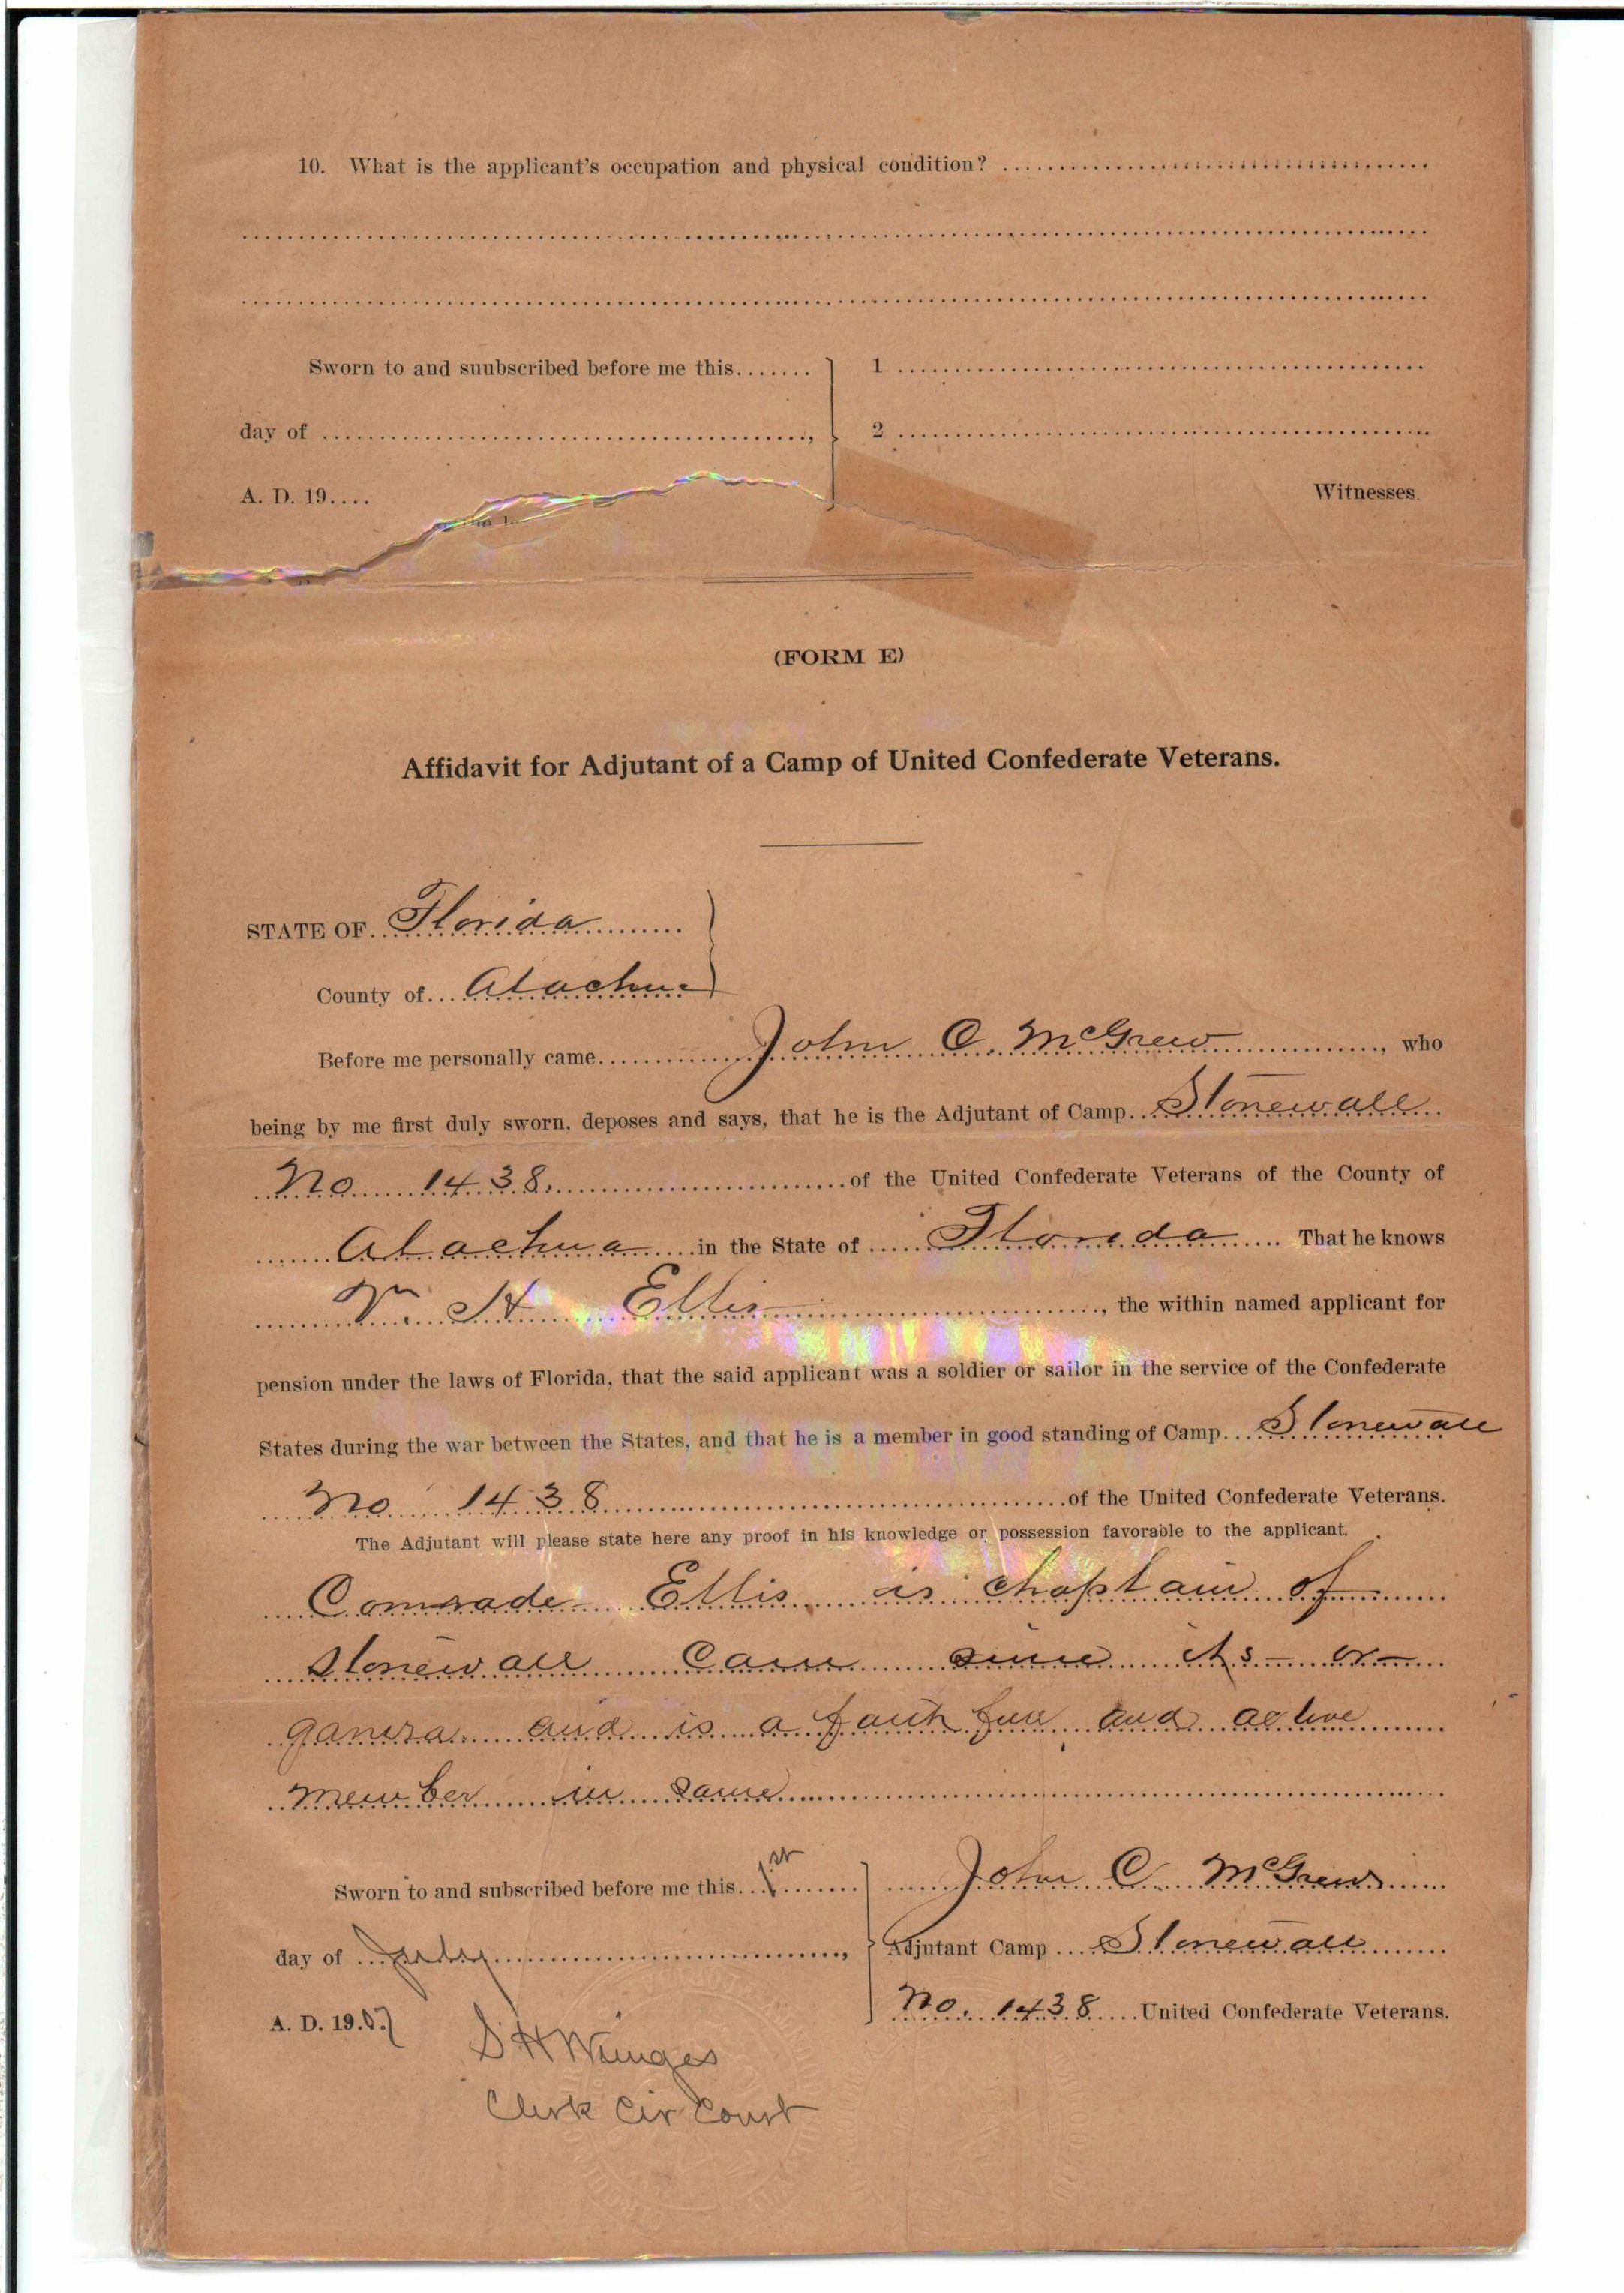 10. What is the applicant's occupation and physical condition?
Sworn to and suubscribed before me this....... 1
day of ......, 2
A. D. 19.... Witnesses.
(FORM E)
Affidavit for Adjutant of a Camp of United Confederate Veterans.
STATE OF Florida
County of Alachua
Before me personally came John C. McGrew, who
being by me first duly sworn, deposes and says, that he is the Adjutant of Camp Stonewall
No 1438. of the United Confederate Veterans of the County of
Alachua in the State of Florida That he knows
Wm. H Ellis, the within named applicant for
pension under the laws of Florida, that the said applicant was a soldier or sailor in the service of the Confederate
States during the war between the States, and that he is a member in good standing of Camp Stonewall
No 1438 of the United Confederate Veterans.
The Adjutant will please state here any proof in his knowledge or possession favorable to the applicant.
Comrade Ellis is chaptain of
Stonewall Cam since its or-
ganiza. and is a faithfull and active
member in same
Sworn to and subscribed before me this 1st John C. McGrew
day of, Adjutant Camp Stonewall
A. D. 1907 No. 1438 United Confederate Veterans.
S H Wienges
Clerk Cir Court